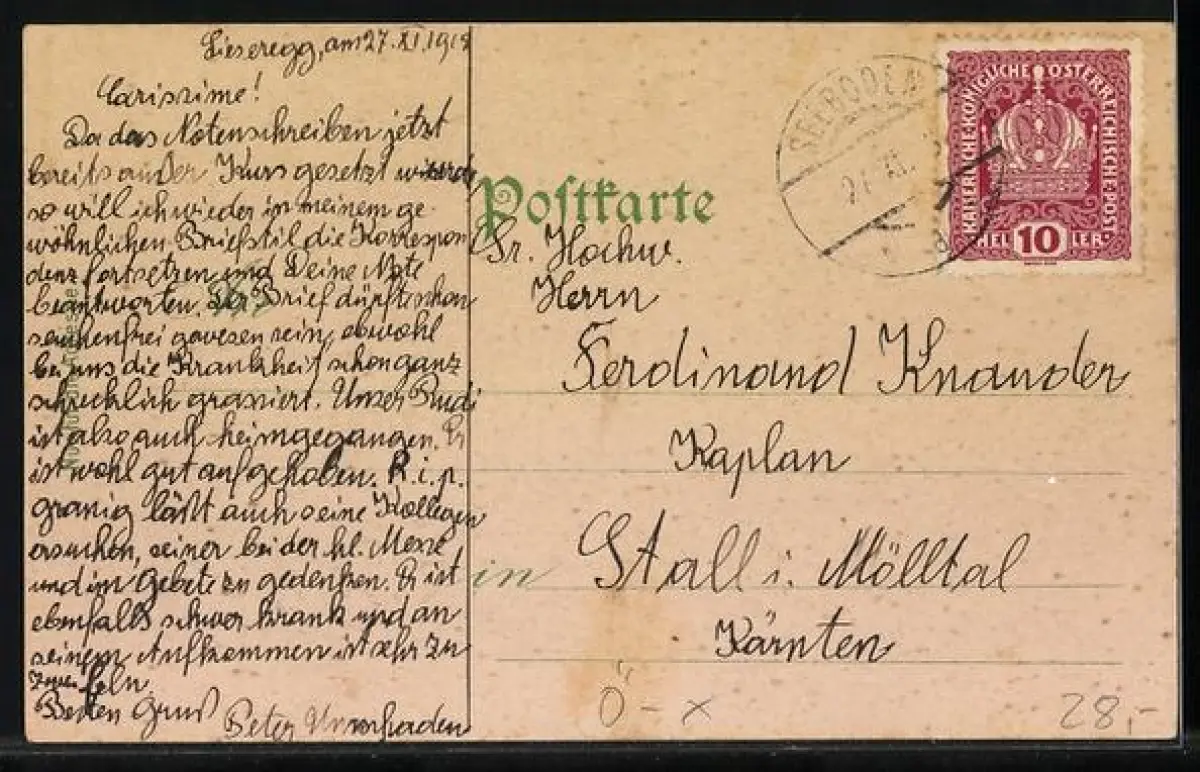 Lieseregg, am 27.XI.1918
Carissime!
Da das Notenschreiben jetzt
bereits außer Kurs gesetzt
so will ich wieder in meinem ge-
wöhnlichen Briefstil die Korrespon
denz fortsetzen und Deine Note
beantworten. Der Brief dürfte schon
seuchenfrei gewesen sein, obwohl
bei uns die Krankheit schon ganz
schrecklich grassiert. Unser Rudi
ist also auch heimgegangen. Er
ist wohl gut aufgehoben. R.i.p.
läßt auch seine Kollegen
ersuchen, seiner bei der hl. Messe
und im Gebete zu gedenken. Er ist
ebenfalls schwer krank und an
seinem Aufkommen ist sehr zu
zwei feln.
Besten Gruß
Peter
Postkarte
Sr. Hochw.
Herrn
Ferdinand Knauder
Kaplan
in Stall i. Mölltal
Kärnten
SEEBODEN
KAISERLICHE KÖNIGLICHE ÖSTERREICHISCHE POST
HEL 10 LER
Ö - x
28,-